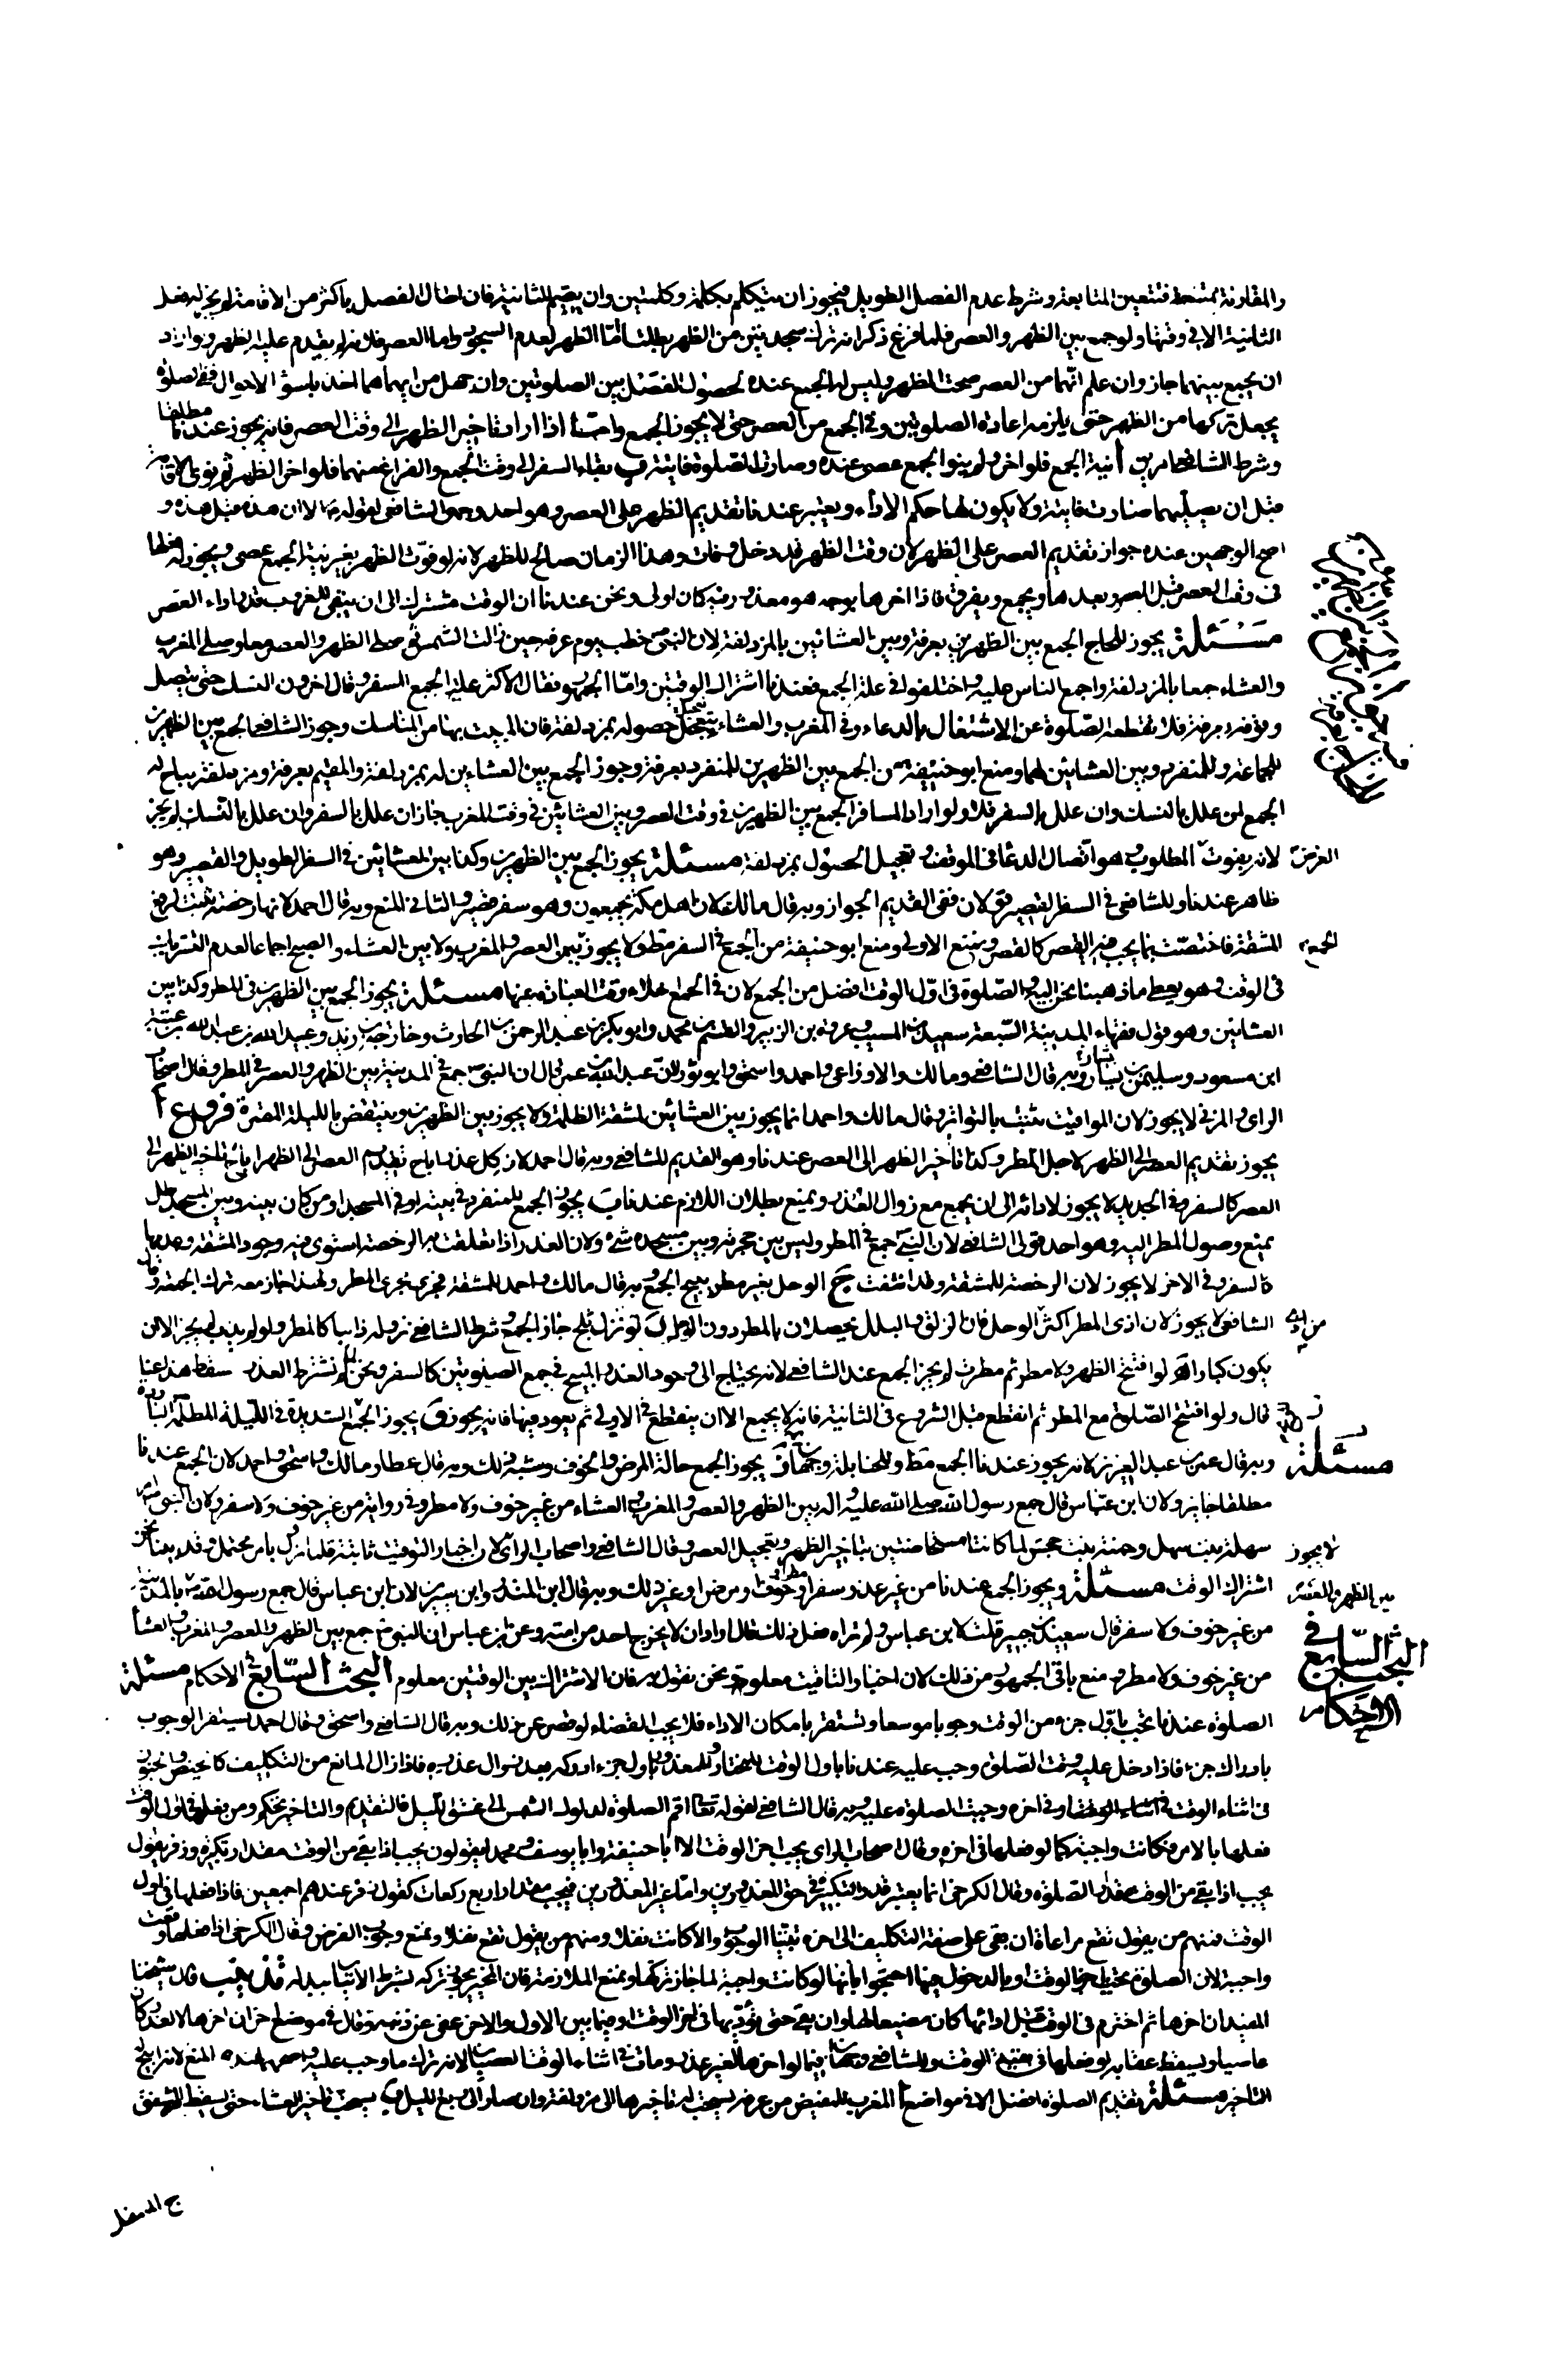 والمقارنة ممتنعة فتتعين المتابعة وشرط عدم الفصل الطويل فيجوز ان يتكلم بكلمة وكلمتين وان يقيم للثانية فان اطال الفصل باكثر من الاقامة لم يجز له فعل
الثانية الا في وقتها ولو جمع بين الظهر والعصر فلما فرغ ذكر انه ترك سجدتين من الظهر بطلتا امّا الظهر لعدم السجود واما العصر فلانه لم يقدم عليه الظهر ولو اراد
ان يجمع بينهما جاز وان علم انّهما من العصر صحت الظهر وليس له الجمع عنده لحصول الفصل بين الصلوتين وان جهل من ايهما هما اخذ باسوء الاحوال ففي الصلوة
يجعل تركها من الظهر حتى يلزمه اعادة الصلوتين وفي الجمع من العصر حتى لا يجوز الجمع وامّا اذا اراد تاخير الظهر الى وقت العصر فانه يجوز عندنا مطلقا
وشرط الشافعي امرين أ نية الجمع فلو اخر ولم ينو الجمع عصى عنده وصارت الصلوة فايتة ب بقاء السفر الى وقت الجمع والفراغ منهما فلو اخر الظهر ثم نوى الاقامة
قبل ان يصليهما صارت فايتة ولا يكون لها حكم الاداء ويعتبر عندنا تقديم الظهر على العصر وهو احد وجهي الشافعي لقوله الا ان هذه قبل هذه و
اصح الوجهين عنده جواز تقديم العصر على الظهر لان وقت الظهر قد دخل وفات وهذا الزمان صالح للظهر لانه لو فوّت الظهر بغير نية الجمع عصى ويجوز له فعلها
في وقت العصر قبل العصر وبعدها ويجمع ويفرق فاذا اخرها بوجه هو معذور فيه كان اولى ونحن عندنا ان الوقت مشترك الى ان يبقى للغروب قدر اداء العصر
مسئلة يجوز للحاج الجمع بين الظهرين بعرفة وبين العشائين بالمزدلفة لان النبي خطب يوم عرفة حين زالت الشمس ثم صلى الظهر والعصر معا وصلى المغرب
والعشاء جمعا بالمزدلفة واجمع الناس عليه واختلفوا في علة الجمع فعندنا اشتراك الوقتين وامّا الجمهور فقال الاكثر علة الجمع السفر وقال اخرون النسك حتى يتصل
وقوفه بعرفة فلا يقطعه الصلوة عن الاشتغال بالدعاء وفي المغرب والعشاء يتعجل حصوله بمزدلفة فان المبيت بها من المناسك وجوز الشافعي الجمع بين الظهرين
للجماعة وللمنفرد وبين العشائين لهما ومنع ابو حنيفة من الجمع بين الظهرين للمنفرد بعرفة وجوز الجمع بين العشاءين له بمزدلفة والمقيم بعرفة ومزدلفة يباح له
الجمع ان علل بالنسك وان علل بالسفر فلا ولو اراد المسافر الجمع بين الظهرين في وقت العصر وبين العشائين في وقت المغرب جاز ان علل بالسفر وان علل بالنسك لم يجز
الغرض لانه يفوت المطلوب هو اتصال الدعاء في الموقف وتعجيل الحصول بمزدلفة مسئلة يجوز الجمع بين الظهرين وكذا بين العشائين في السفر الطويل والقصير وهو
ظاهر عندنا وللشافعي في السفر القصير قولان ففي القديم الجواز وبه قال مالك لان اهل مكة يجمعون وهو سفر قصير والثاني المنع وبه قال احمد لانها رخصة تثبت لرفع
المشقة فاختصت بما يجب فيه القصر كالقصر ونمنع الاولى ومنع ابو حنيفة من الجمع في السفر مطلقا ولا يجوز بين العصر والمغرب ولا بين العشاء والصبح اجماعا لعدم القرب بينهما
في الوقت وهو يعطي ما ذهبنا نحن اليه والصلوة في اوّل الوقت افضل من الجمع لان في الجمع اخلاء وقت العبادة عنها مسئلة يجوز الجمع بين الظهرين في المطر وكذا بين
العشائين وهو قول فقهاء المدينة السّبعة سعيد بن المسيب وعروة بن الزبير والقسم بن محمد وابو بكر بن عبد الرحمن بن الحارث وخارجة بن زيد وعبيد الله بن عبد الله بن عتبة
ابن مسعود وسليمن بن يسار وبه قال الشافعي ومالك والاوزاعي واحمد واسحق وابو ثور لان عبد الله بن عمر قال ان النبي جمع في المدينة بين الظهر والعصر في المطر وقال اصحاب
الراي والمزني لا يجوز لان المواقيت تثبت بالتواتر وقال مالك واحمد انما يجوز بين العشائين لمشقة الظلمة ولا يجوز بين الظهرين وينتقض بالليلة المقمرة فروع أ
يجوز تقديم العصر الى الظهر لاجل المطر وكذا تاخير الظهر الى العصر عندنا وهو القديم للشافعي وبه قال احمد لان كل عذر اباح تقديم العصر الى الظهر اباح تاخير الظهر الى
العصر كالسفر وفي الجديد لا يجوز لادائه الى ان يجمع مع زوال العذر ونمنع بطلان اللازم عندنا ب يجوز الجمع للمنفرد في بيته او في المسجد او من كان بينه وبين المسجد ظلال
يمنع وصول المطر اليه وهو احد قولي الشافعي لان النبي جمع في المطر وليس بين حجرته وبين مسجده شئ ولان العذر اذا تعلقت به الرخصة استوى فيه وجود المشقة وعدمها
كالسفر وفي الاخر لا يجوز لان الرخصة للمشقة وقد انتفت ج الوحل بغير مطر يبيح الجمع وبه قال مالك واحمد للمشقة فجرى مجرى المطر ولهذا جاز معه ترك الجمعة وقال
الشافعي لا يجوز لان اذى المطر اكثر من اذى الوحل فان الزلق والبلل يحصلان بالمطر دون الوحل د لو نزل ثلج جاز الجمع وشرط الشافعي نزوله ذائبا كالمطر ولو لم يذب لم يجز الا ان
يكون كبارا ه لو افتتح الظهر ولا مطر ثم مطرت لم يجز الجمع عند الشافعي لانه يحتاج الى وجود العذر المبيح في جمع الصلوتين كالسفر ونحن لما لم نشترط العذر سقط هذا عنا
قال ولو افتتح الصّلوة مع المطر ثم انقطع قبل الشروع في الثانية فانه لا يجمع الا ان ينقطع في الاولى ثم يعود فيها فانه يجوز و يجوز الجمع في الليلة المظلمة الباردة
وبه قال عمر بن عبد العزيز لانه يجوز عندنا الجمع مطلقا وللحنابلة وجهان ز يجوز الجمع حالة المرض والخوف وشبه ذلك وبه قال عطا ومالك واسحق واحمد لان الجمع عندنا
مطلقا جايز ولان ابن عبّاس قال جمع رسول الله صلى الله عليه وآله بين الظهر والعصر والمغرب والعشاء من غير خوف ولا مطر وفي رواية من غير خوف ولا سفر ولان النبي امر
سهلة بنت سهل وحمنة بنت جحش لما كانتا مستحاضتين بتاخير الظهر وتعجيل العصر وقال الشافعي واصحاب الراي لا لان اخبار التوقيت ثابتة فلا تترك بامر محتمل وقد بينا نحن
اشتراك الوقت مسئلة ويجوز الجمع عندنا من غير عذر سفر او خوف او مطر او مرض او غير ذلك وبه قال ابن المنذر وابن سيرين لان ابن عباس قال جمع رسول الله بالمدينة
من غير خوف ولا سفر قال سعيد بن جبير قلت لابن عباس ولم تراه فعل ذلك قال اراد ان لا يحرج احد من امته وعن ابن عباس ان النبي جمع بين الظهر والعصر والمغرب والعشا
من غير خوف ولا مطر ومنع باقي الجمهور من ذلك لان اخبار التاقيت معلومة ونحن نقول به فان الاشتراك بين الوقتين معلوم البحث السّابع في الاحكام مسئلة
الصلوة عندنا تجب باوّل جزء من الوقت وجوبا موسعا وتستقر بامكان الاداء فلا يجب القضاء لو قصر عن ذلك وبه قال الشافعي واسحق وقال احمد يستقر الوجوب
بادراك جزء فاذا دخل عليه وقت الصّلوة وجب عليه عندنا باول الوقت للمختار وللمعذور باول جزء ادركه بعد زوال عذره فاذا زال المانع من التكليف كالحيض والجنون
في اثناء الوقت او في اخره وجبت الصلوة عليه وبه قال الشافعي لقوله تعالى اقم الصلوة لدلوك الشمس الى غسق الليل فالتقديم والتاخير تحكم ومن فعلها في اول الوقت
فعلها بالامر فكانت واجبة كما لو فعلها في اخره وقال اصحاب الراي يجب اخر الوقت الا ابا حنيفة وابا يوسف ومحمد ليقولون يجب اذا بقي من الوقت مقدار تكبيرة وزفر يقول
يجب اذا بقي من الوقت مقدار الصّلوة وقال الكرخي انما يعتبر قدر التكبيرة في حق المعذورين وامّا غير المعذورين فيجب مقدار اربع ركعات كقول زفر عندهم اجمعين فاذا فعلها في اول
الوقت فمنهم من يقول تقع مراعاة ان بقي على صفة التكليف الى اخره تبيّنا الوجوب والا كانت نفلا ومنهم من يقول تقع نفلا وتمنع وجوب الفرض وقال الكرخي اذا فعلها وقعت
واجبة لان الصلوة تجب باخر الوقت او بالدخول فيها احتجوا بانها لو كانت واجبة لما جاز تركها ونمنع الملازمة فان المخير يجوز تركه بشرط الاتيان ببدله تذنيب قال شيخنا
المفيد ان اخرها ثم اخترم في الوقت قبل ادائها كان مضيعا لها وان بقي حتى يؤدّيها في اخر الوقت او فيما بين الاول والاخر عفى عن ذنبه وقال في موضع اخر ان اخرها لا لعذر كان
عاصيا ويسقط عقابه لو فعلها في بقية الوقت وللشافعي وجهان فيما لو اخرها لغير عذر ومات في اثناء الوقت العصيان لانه ترك ما وجب عليه واصحهما عنده المنع لانه ابيح له
التاخير مسئلة تقديم الصلوة افضل الا في مواضع أ المغرب للمفيض من عرفة يستحب له تاخيرها الى مزدلفة وان صار الى ربع الليل ب يستحب تاخير العشاء حتى يسقط الشفق
لا يجوز
البحث السّابع في
الاحكام
مسئلة